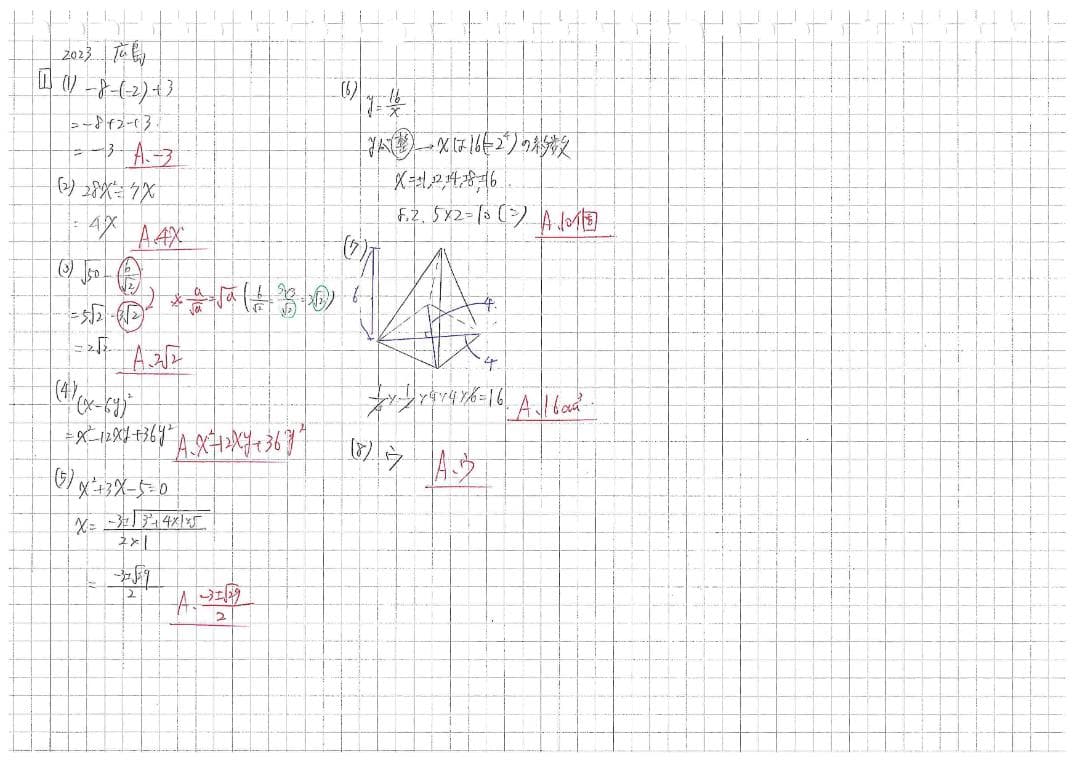 2023 広島
1 (1) -8-(-2)+3
=-8+2+3
=-3 A.-3
(2) 28x²÷7x
=4x
A.4x
(3) √50-6/√2
=5√2-3√2 ※ a/√a=√a (6/√2=
=2√2
A.2√2
(4) (x-6y)²
=x²-12xy+36y² A.x²-12xy+36y²
(5) x²+3x-5=0
x=-3±√3²+4×1×5/2×1
=-3±√29/2
A.-3±√29/2
(6) y=16/x
yが整→xは16(=2⁴)の約数
x=±1,±2,±4,±8,±16
5×2=10(こ) A.10個
(7)
6
4
4
×1/2×4×4×6=16 A.16cm³
(8) う
A.う